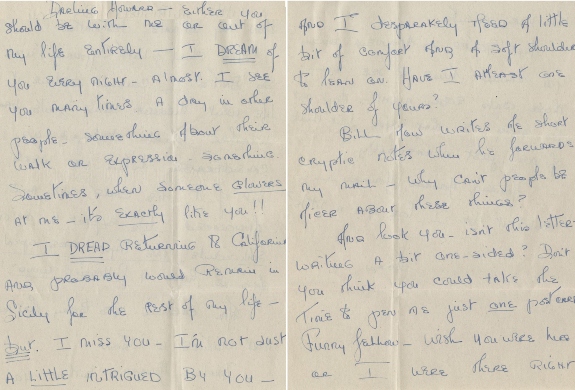 Darling Howard — Either you
should be with me or out of
my life entirely — I DREAM of
you every night. Almost. I see
you many times A day in other
people. Something about their
walk or expression. Something.
Sometimes, when someone GLOWERS
AT me — its EXACTLY like you!!
I DREAD returning to California
AND probably would remain in
Sicily for the rest of my life —
but. I miss you — I'm not just
A LITTLE intrigued by you —
AND I desperately need of little
bit of comfort AND of soft shoulder
to lean on. Have I Atleast one
shoulder of yours?
Bill now writes me short
cryptic notes when he forwards
my mail — why can't people be
nicer about these things?
And look you — isn't this letter
writing A bit one-sided? Don't
you think you could take the
time to pen me just one postcard
Funny fellow — wish you were here
or I were there right